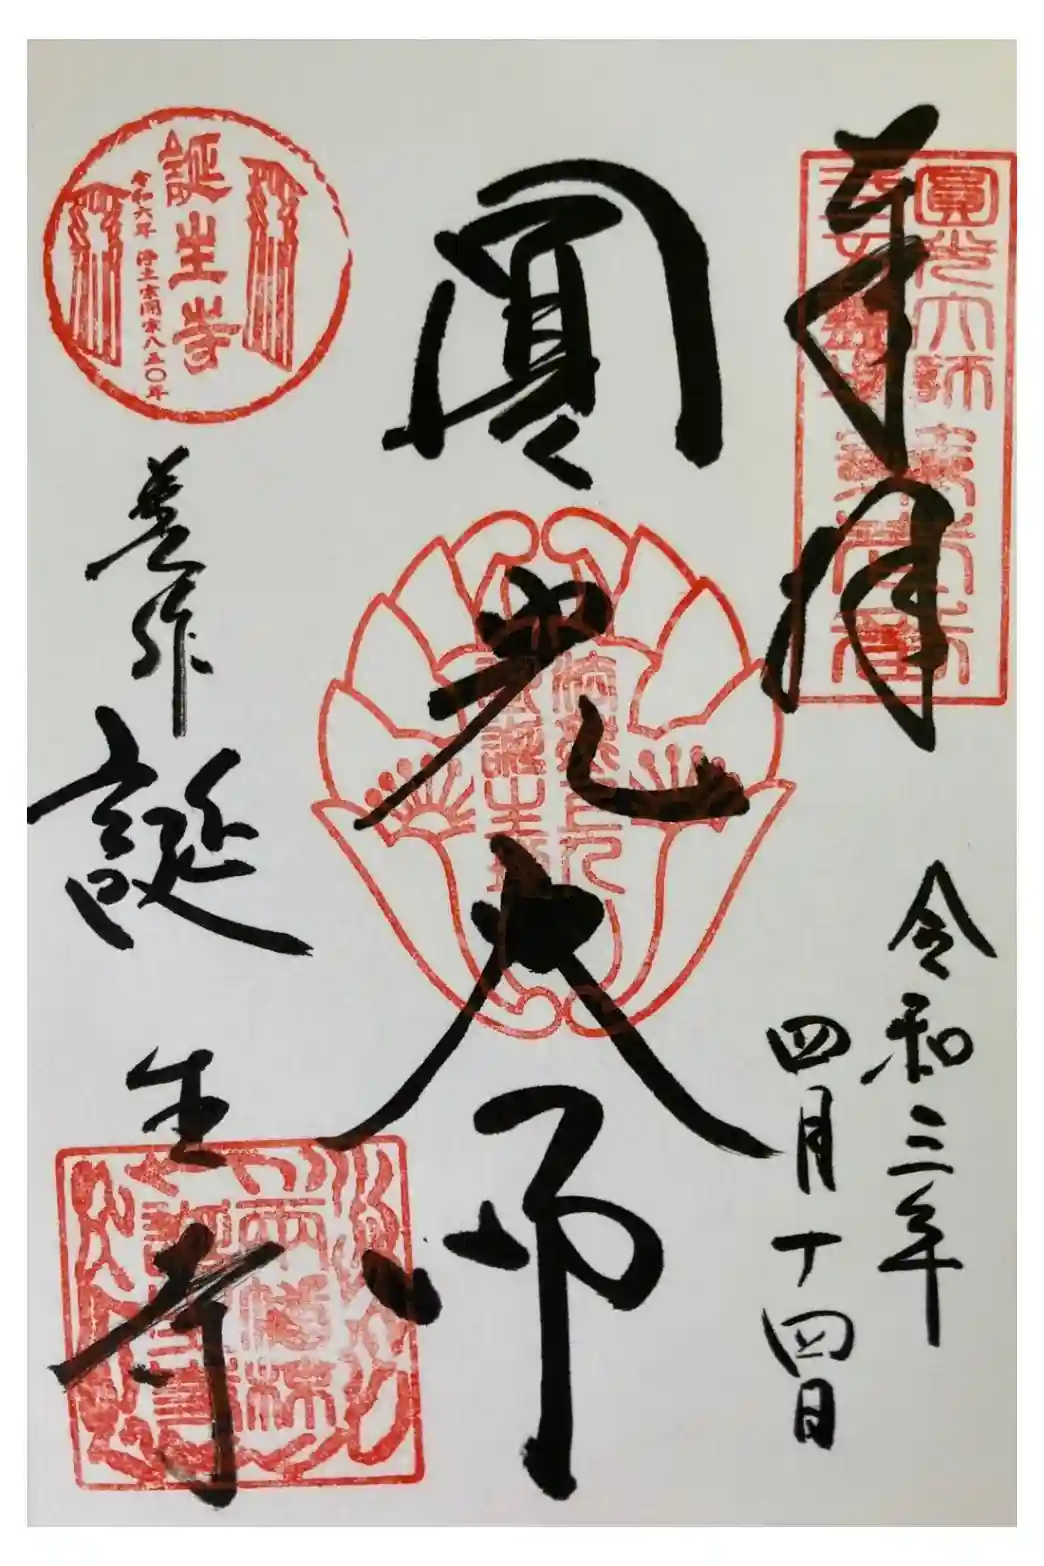 奉拝
圓光大師
令和三年
四月十四日
圓光大師
法然上人
誕生寺
令和六年 浄土宗開宗八五〇年
美作
誕生寺